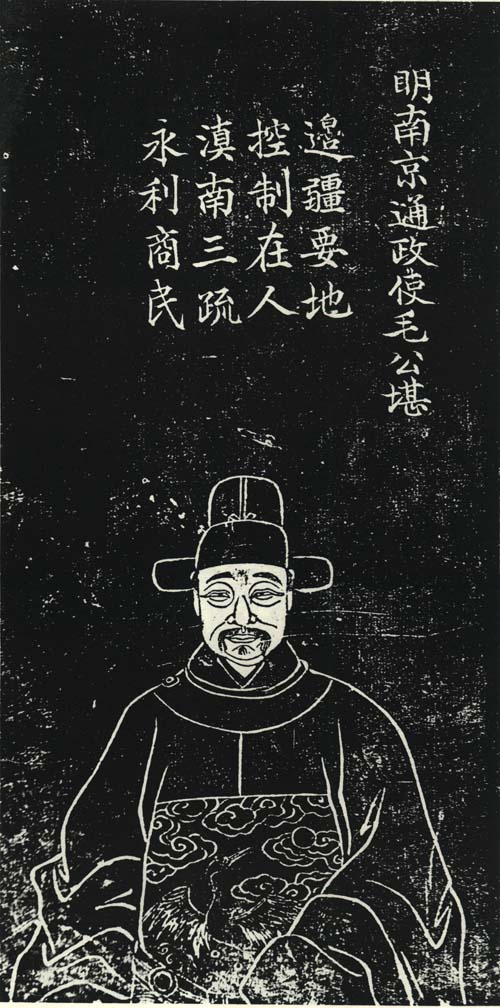 明南京通政使毛公堪
邉疆要地
控制在人
滇南三疏
永利商民